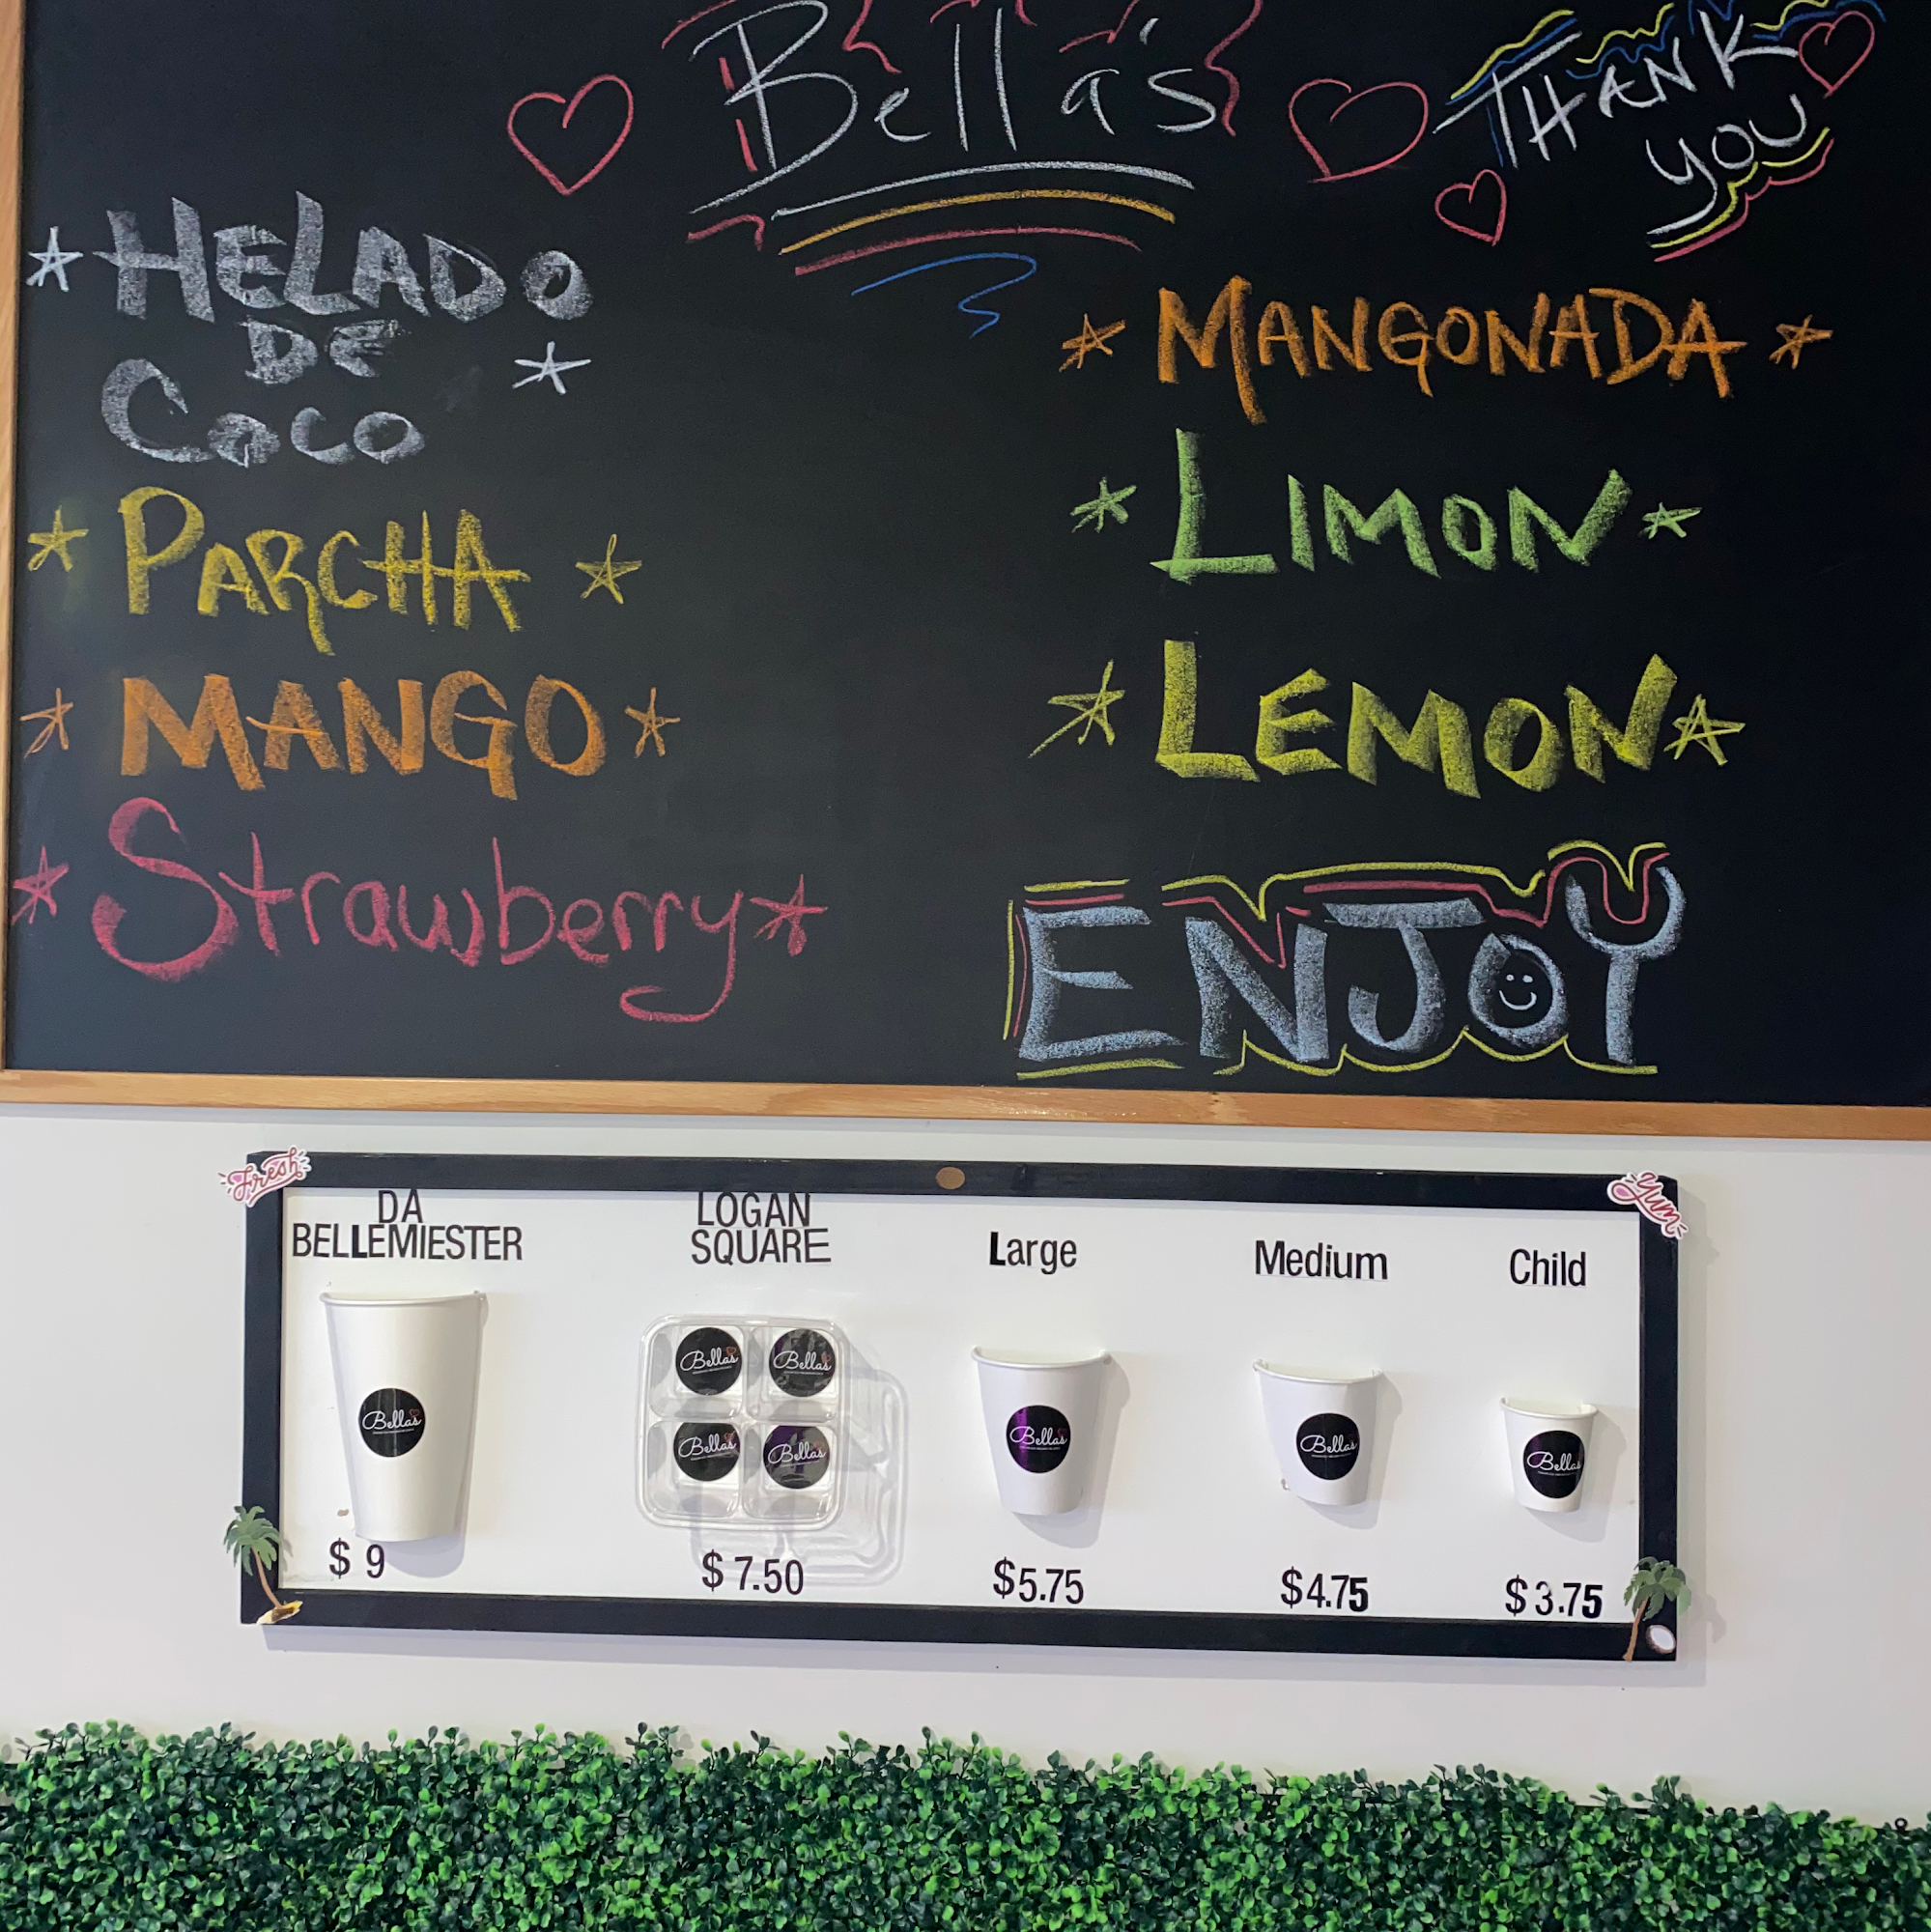 Bella's
THANK
YOU
HELADO
DE
COCO
PARCHA
MANGO
Strawberry
MANGONADA
LIMON
LEMON
ENJOY
Fresh
Yum
DA
BELLEMIESTER
LOGAN
SQUARE
Large
Medium
Child
Bella's
Bella's
Bella's
Bella's
Bella's
Bella's
Bella's
Bella's
$ 9
$ 7.50
$5.75
$4.75
$3.75